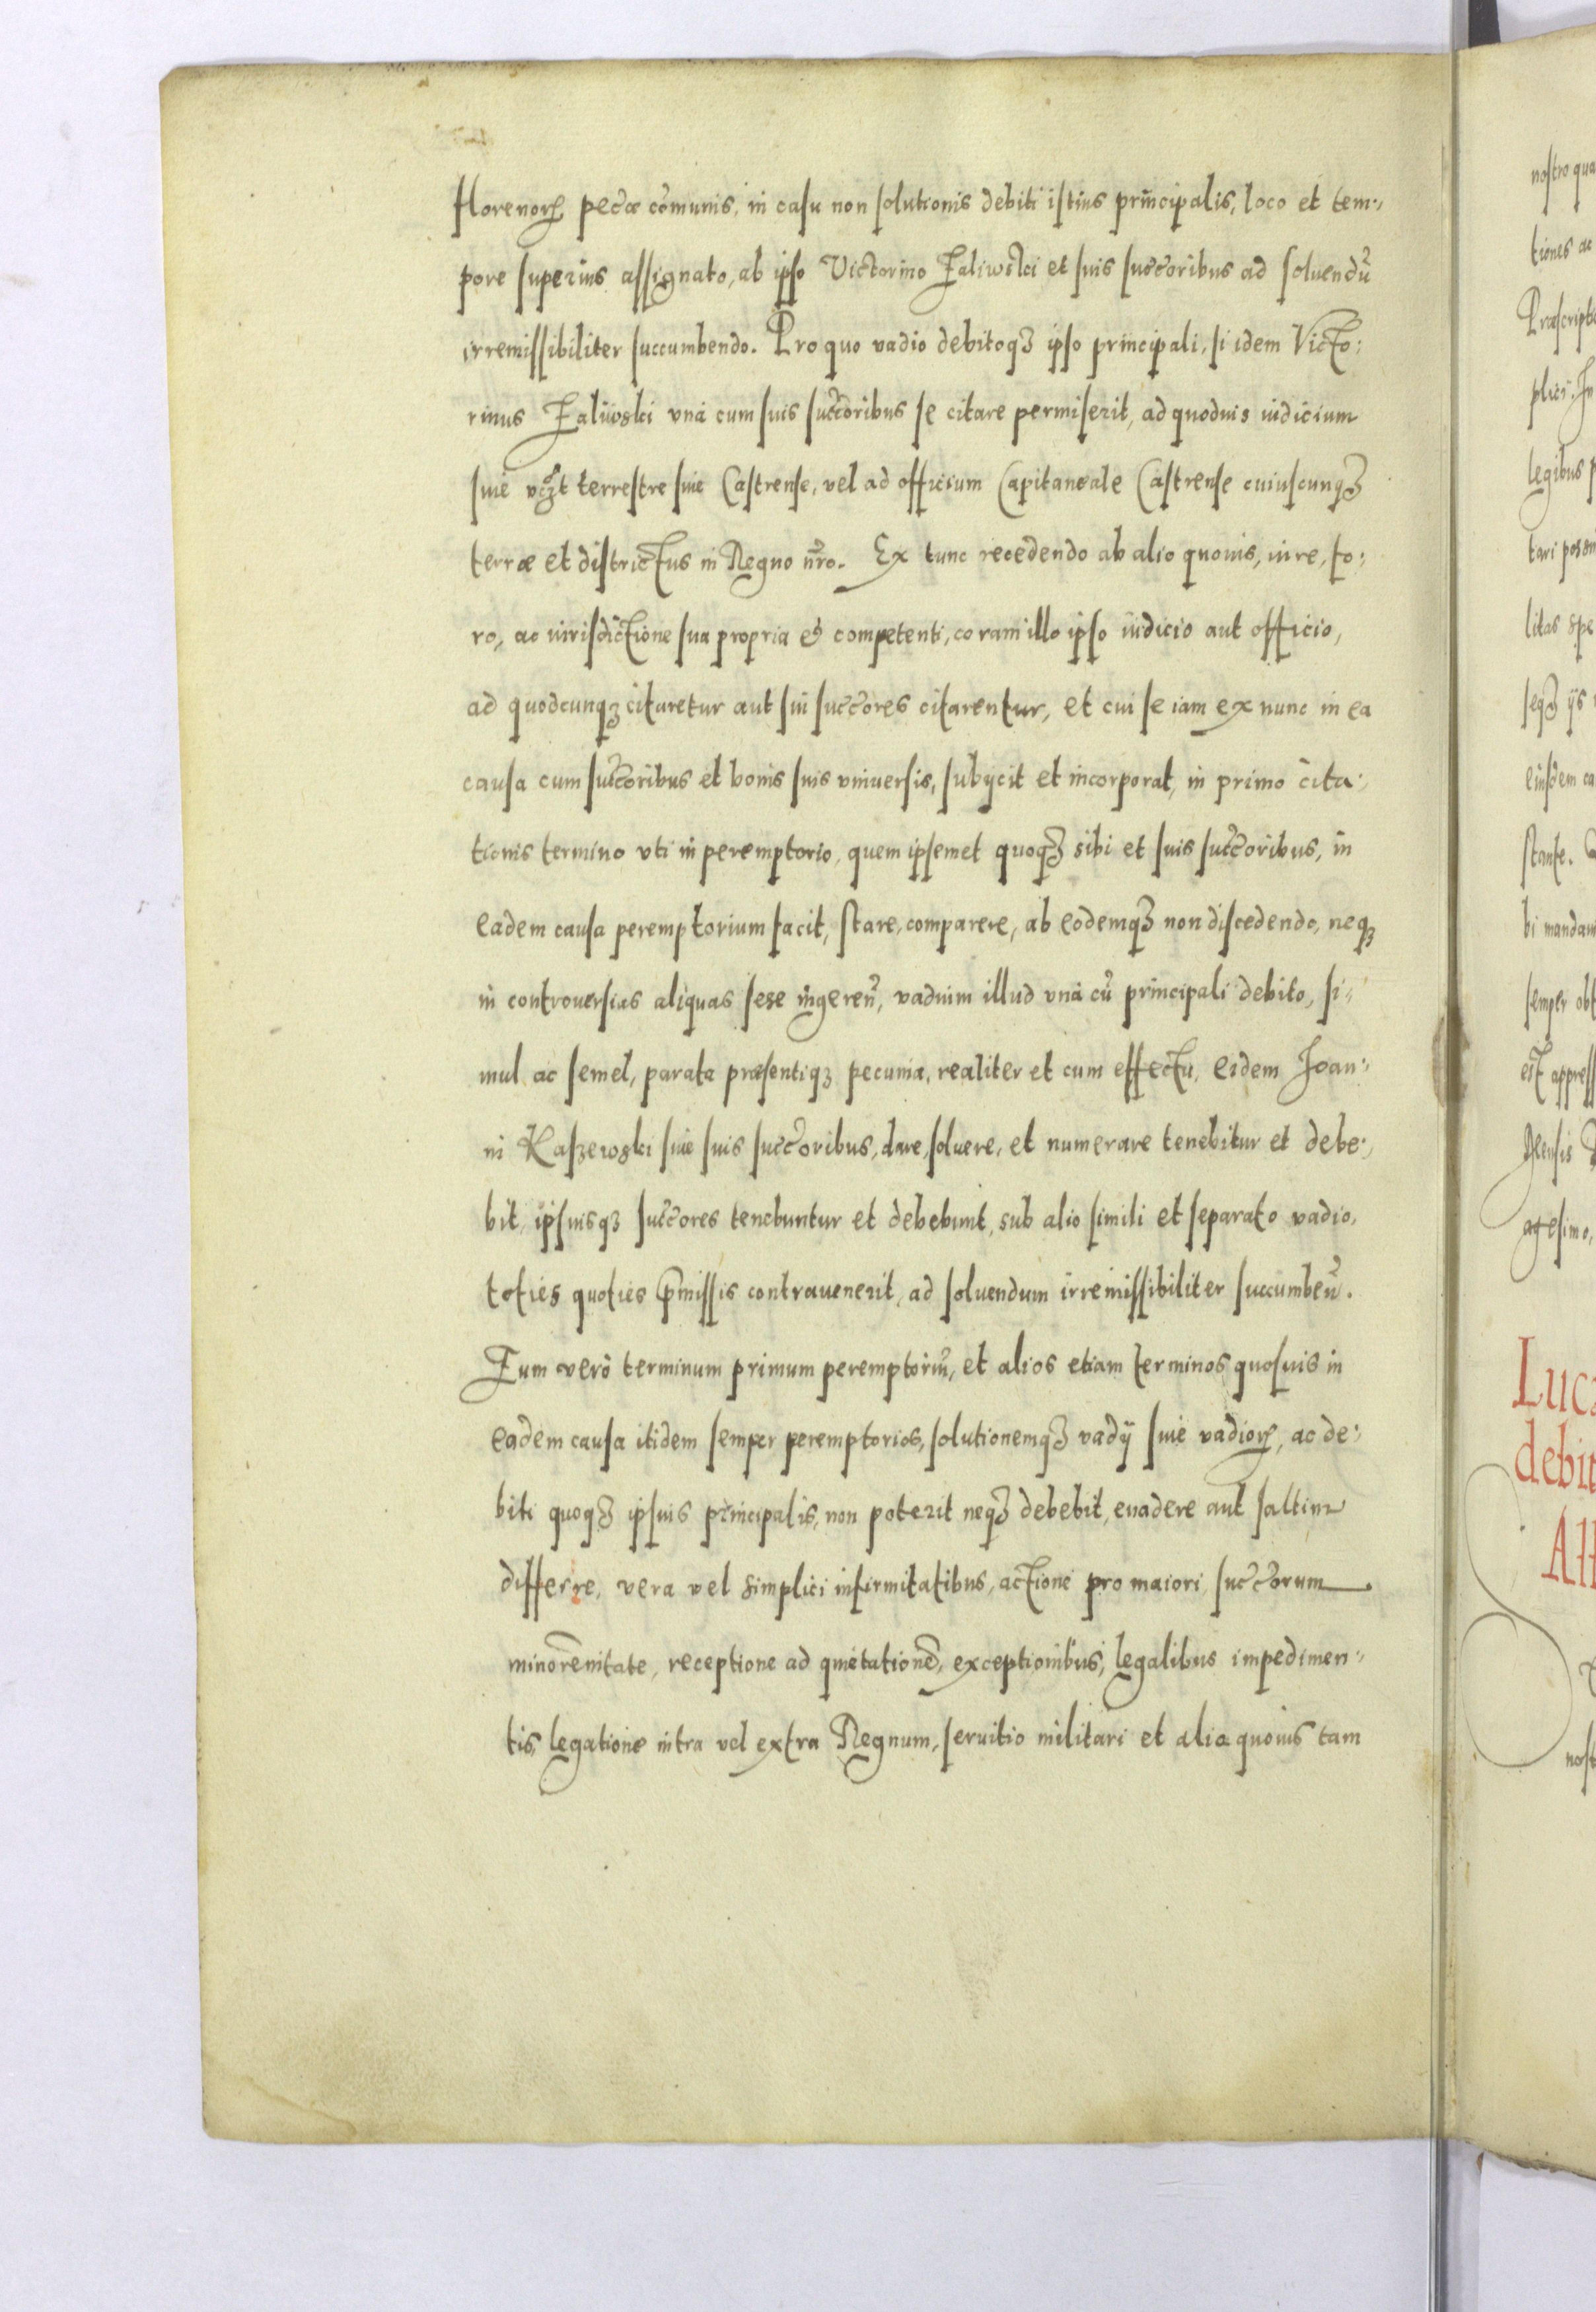 florenorꝝ pecæ cōmunis, in casu non solutionis debiti istius principalis, loco et tem-
pore superius assignato, ab ipso Victorino Zaliwski et suis succoribus ad soluendū
irremissibiliter succumbendo. Pro quo vadio debitoqꝫ ipso principali, si idem Victo:
rinus Zaliwski vnà cum suis succoribus se citare permiserit, ad quoduis iudicium
siue terrestre siue Castrense, vel ad officium Capitaneale Castrense cuiuscunqꝫ
terræ et districtus in Regno nr̄o. Ex tunc recedendo ab alio quouis, iure, fo:
ro, ac iurisdictione sua propria & competenti, coram illo ipso iudicio aut officio,
ad quodcunqꝫ citaretur aut sui succores citarentur, et cui se iam ex nunc in ea
causa cum succoribus et bonis suis vniuersis, subijcit et incorporat, in primo cita:
tionis termino vti in peremptorio, quem ipsemet quoqꝫ sibi et suis succoribus, in
eadem causa peremptorium facit, stare, comparere, ab eodemqꝫ non discedendo, neqꝫ
in controuersias aliquas sese ingeren̄, vadium illud vnà cū principali debito, si-
mul ac semel, parata præsentiqꝫ pecunia, realiter et cum effectu, eidem Joan:
ni Kaszewski siue suis succoribus, dare, soluere, et numerare tenebitur et debe:
bit, ipsiusqꝫ succores tenebuntur et debebunt, sub alio simili et separato vadio,
toties quoties p̄missis contrauenerit, ad soluendum irremissibiliter succumben̄.
Eum verò terminum primum peremptoriū, et alios etiam terminos quosuis in
eadem causa itidem semper peremptorios, solutionemqꝫ vadij siue vadiorꝝ, ac de:
biti quoqꝫ ipsius principalis, non poterit neqꝫ debebit, euadere aut saltim
differre, vera vel simplici infirmitatibus, actione pro maiori, succorum
minorēnitate, receptione ad quietationē, exceptionibus, legalibus impedimen-
tis, legatione intra vel extra Regnum, seruitio militari et alia quouis tam
nostro qua
tiones ac
Præscripto
plici. In
legibus p
litas spe
seqꝫ ijs
eiusdem ca
stante.
bi mandaui
semper obt
est appress
agesimo,
Luca
debit